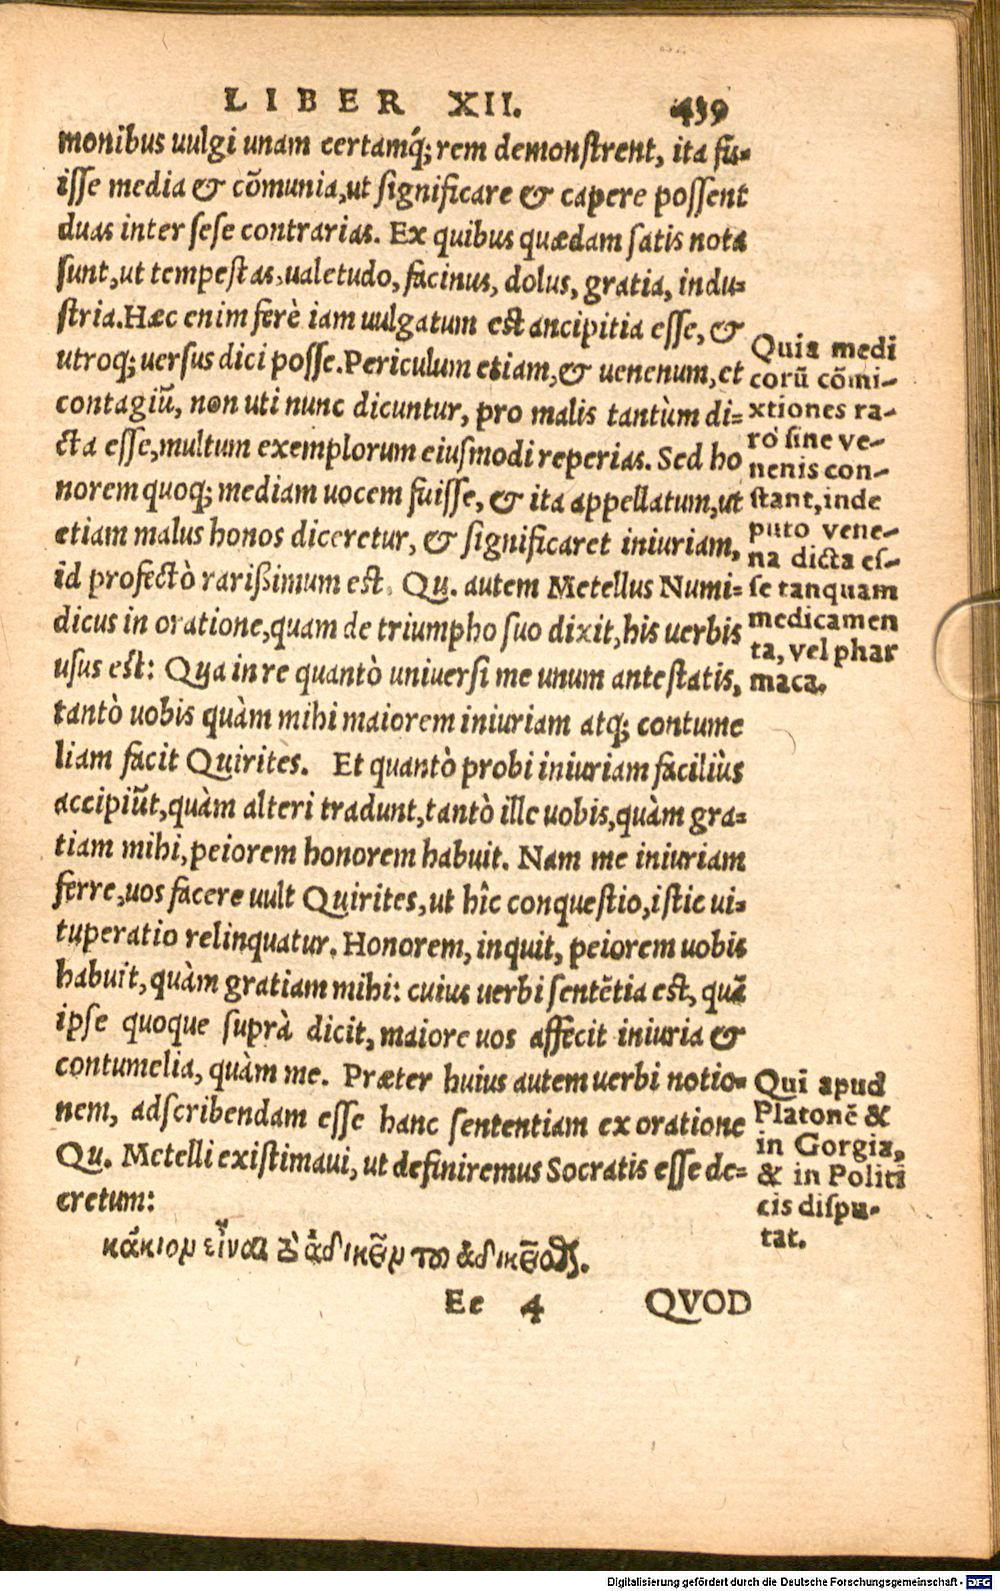 LIBER XII. 439
monibus uulgi unam certamq́; rem demonſtrent, ita fu-
iſſe media & cõmunia, ut ſignificare & capere poſſent
duas inter ſeſe contrarias. Ex quibus quædam ſatis nota
ſunt, ut tempeſtas, ualetudo, facinus, dolus, gratia, indu-
ſtria. Hæc enim ferè iam uulgatum eſt ancipitia eſſe, &
utroq; uerſus dici poſſe. Periculum etiam, & uenenum, et
contagiũ, non uti nunc dicuntur, pro malis tantùm di-
cta eſſe, multum exemplorum eiuſmodi reperias. Sed ho
norem quoq; mediam uocem fuiſſe, & ita appellatum, ut
etiam malus honos diceretur, & ſignificaret iniuriam,
id profectò rarißimum eſt. Qu. autem Metellus Numi-
dicus in oratione, quam de triumpho ſuo dixit, his uerbis
uſus eſt: Qua in re quantò uniuerſi me unum anteſtatis,
tantò uobis quàm mihi maiorem iniuriam atq; contume
liam facit Quirites. Et quantò probi iniuriam faciliùs
accipiũt, quàm alteri tradunt, tantò ille uobis, quàm gra-
tiam mihi, peiorem honorem habuit. Nam me iniuriam
ferre, uos facere uult Quirites, ut hîc conqueſtio, iſtic ui-
tuperatio relinquatur. Honorem, inquit, peiorem uobis
habuit, quàm gratiam mihi: cuius uerbi ſentẽtia eſt, quã
ipſe quoque ſuprà dicit, maiore uos affecit iniuria &
contumelia, quàm me. Præter huius autem uerbi notio-
nem, adſcribendam eſſe hanc ſententiam ex oratione
Qu. Metelli exiſtimaui, ut definiremus Socratis eſſe de-
cretum:
κάκιον εἶναι τὸ ἀδικεῖν τοῦ ἀδικεῖσθαι.
Ee 4 QVOD
Quia medi
corũ cõmi-
xtiones ra-
rò ſine ve-
nenis con-
ſtant, inde
puto vene-
na dicta eſ-
ſe tanquam
medicamen
ta, vel phar
maca.
Qui apud
Platonẽ &
in Gorgia,
& in Politi
cis diſpu-
tat.
Digitalisierung gefördert durch die Deutsche Forschungsgemeinschaft - DFG